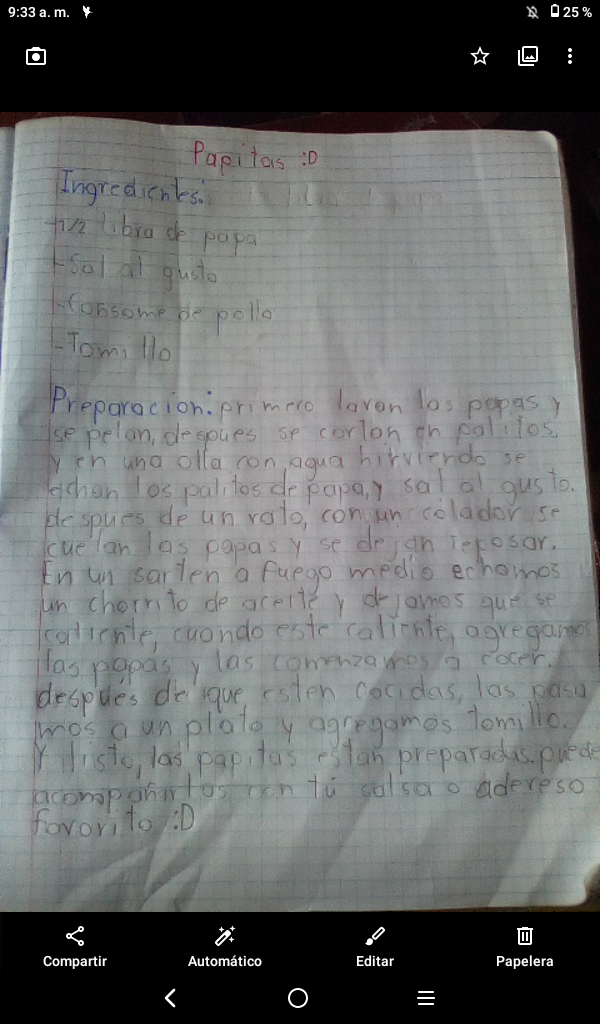 9:33 a. m.
25 %
Papitas :D
Ingredientes:
-1/2 libra de papa
-Sal al gusto
-Consome de pollo
-Tomillo
Preparacion: primero lavan las papas y
se pelan, despues se cortan en palitos,
y en una olla con agua hirviendo se
echan los palitos de papa, y sal al gusto.
despues de un rato, con un colador se
cuelan las papas y se dejan reposar.
En un sarten a fuego medio echamos
un chorrito de aceite y dejamos que se
caliente, cuando este caliente, agregamos
las papas y las comenzamos a cocer.
después de que esten cocidas, las pasa
mos a un plato y agregamos tomillo.
Y listo, las papitas estan preparadas. puede
acompañarlos con tú salsa o adereso
favorito :D
Compartir
Automático
Editar
Papelera